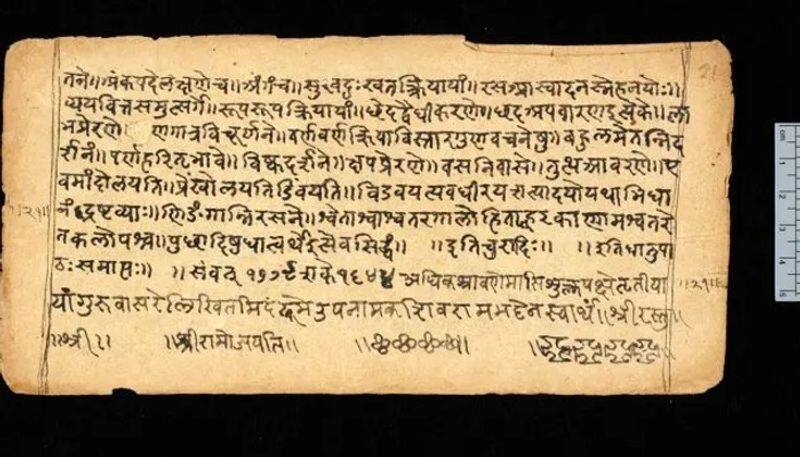 तने॥अंकपदेलक्षणेच॥अंगच॥सुखदुःखतत्क्रियायां॥रसआस्वादनस्नेहनयोः॥
व्ययवित्तसमुत्सर्गे॥रूपरूपक्रियायां॥छेदद्वैधीकरणे॥छदअपवारणइत्येके॥ला
भप्रेरणे॥ व्रणगात्रविचूर्णने॥वर्णवर्णक्रियाविस्तारगुणवचनेषु॥बहुलमेतन्निद
र्शनं॥पर्णहरितभावे॥विष्कदर्शने॥क्षपप्रेरणे॥वसनिवासे॥तुत्थआवरणे॥ए
वमांदोलयति॥प्रेंखोलयति॥विडवयत्यवधीरयत्यादयोयथाभिधा
नंद्रष्टव्याः॥णिङंगान्निरसने॥श्वेताश्वाश्वतरगालोडिताह्वरकाणामश्वतरे
तकलोपश्च॥पुच्छादिषुधात्वर्थइत्येवसिद्धं॥ ॥इतिचुरादिः॥ ॥इतिधातुपा
ठःसमाप्तः॥ ॥संवत् १७७९शके१६४४ अधिकश्रावणेमासिशुक्लपक्षेतृतीया
यांगुरुवासरेलिखितमिदं उपनामकशिवराम स्वार्थं॥श्रीरस्तु॥
॥श्री॥ ॥श्रीरामोजयति॥